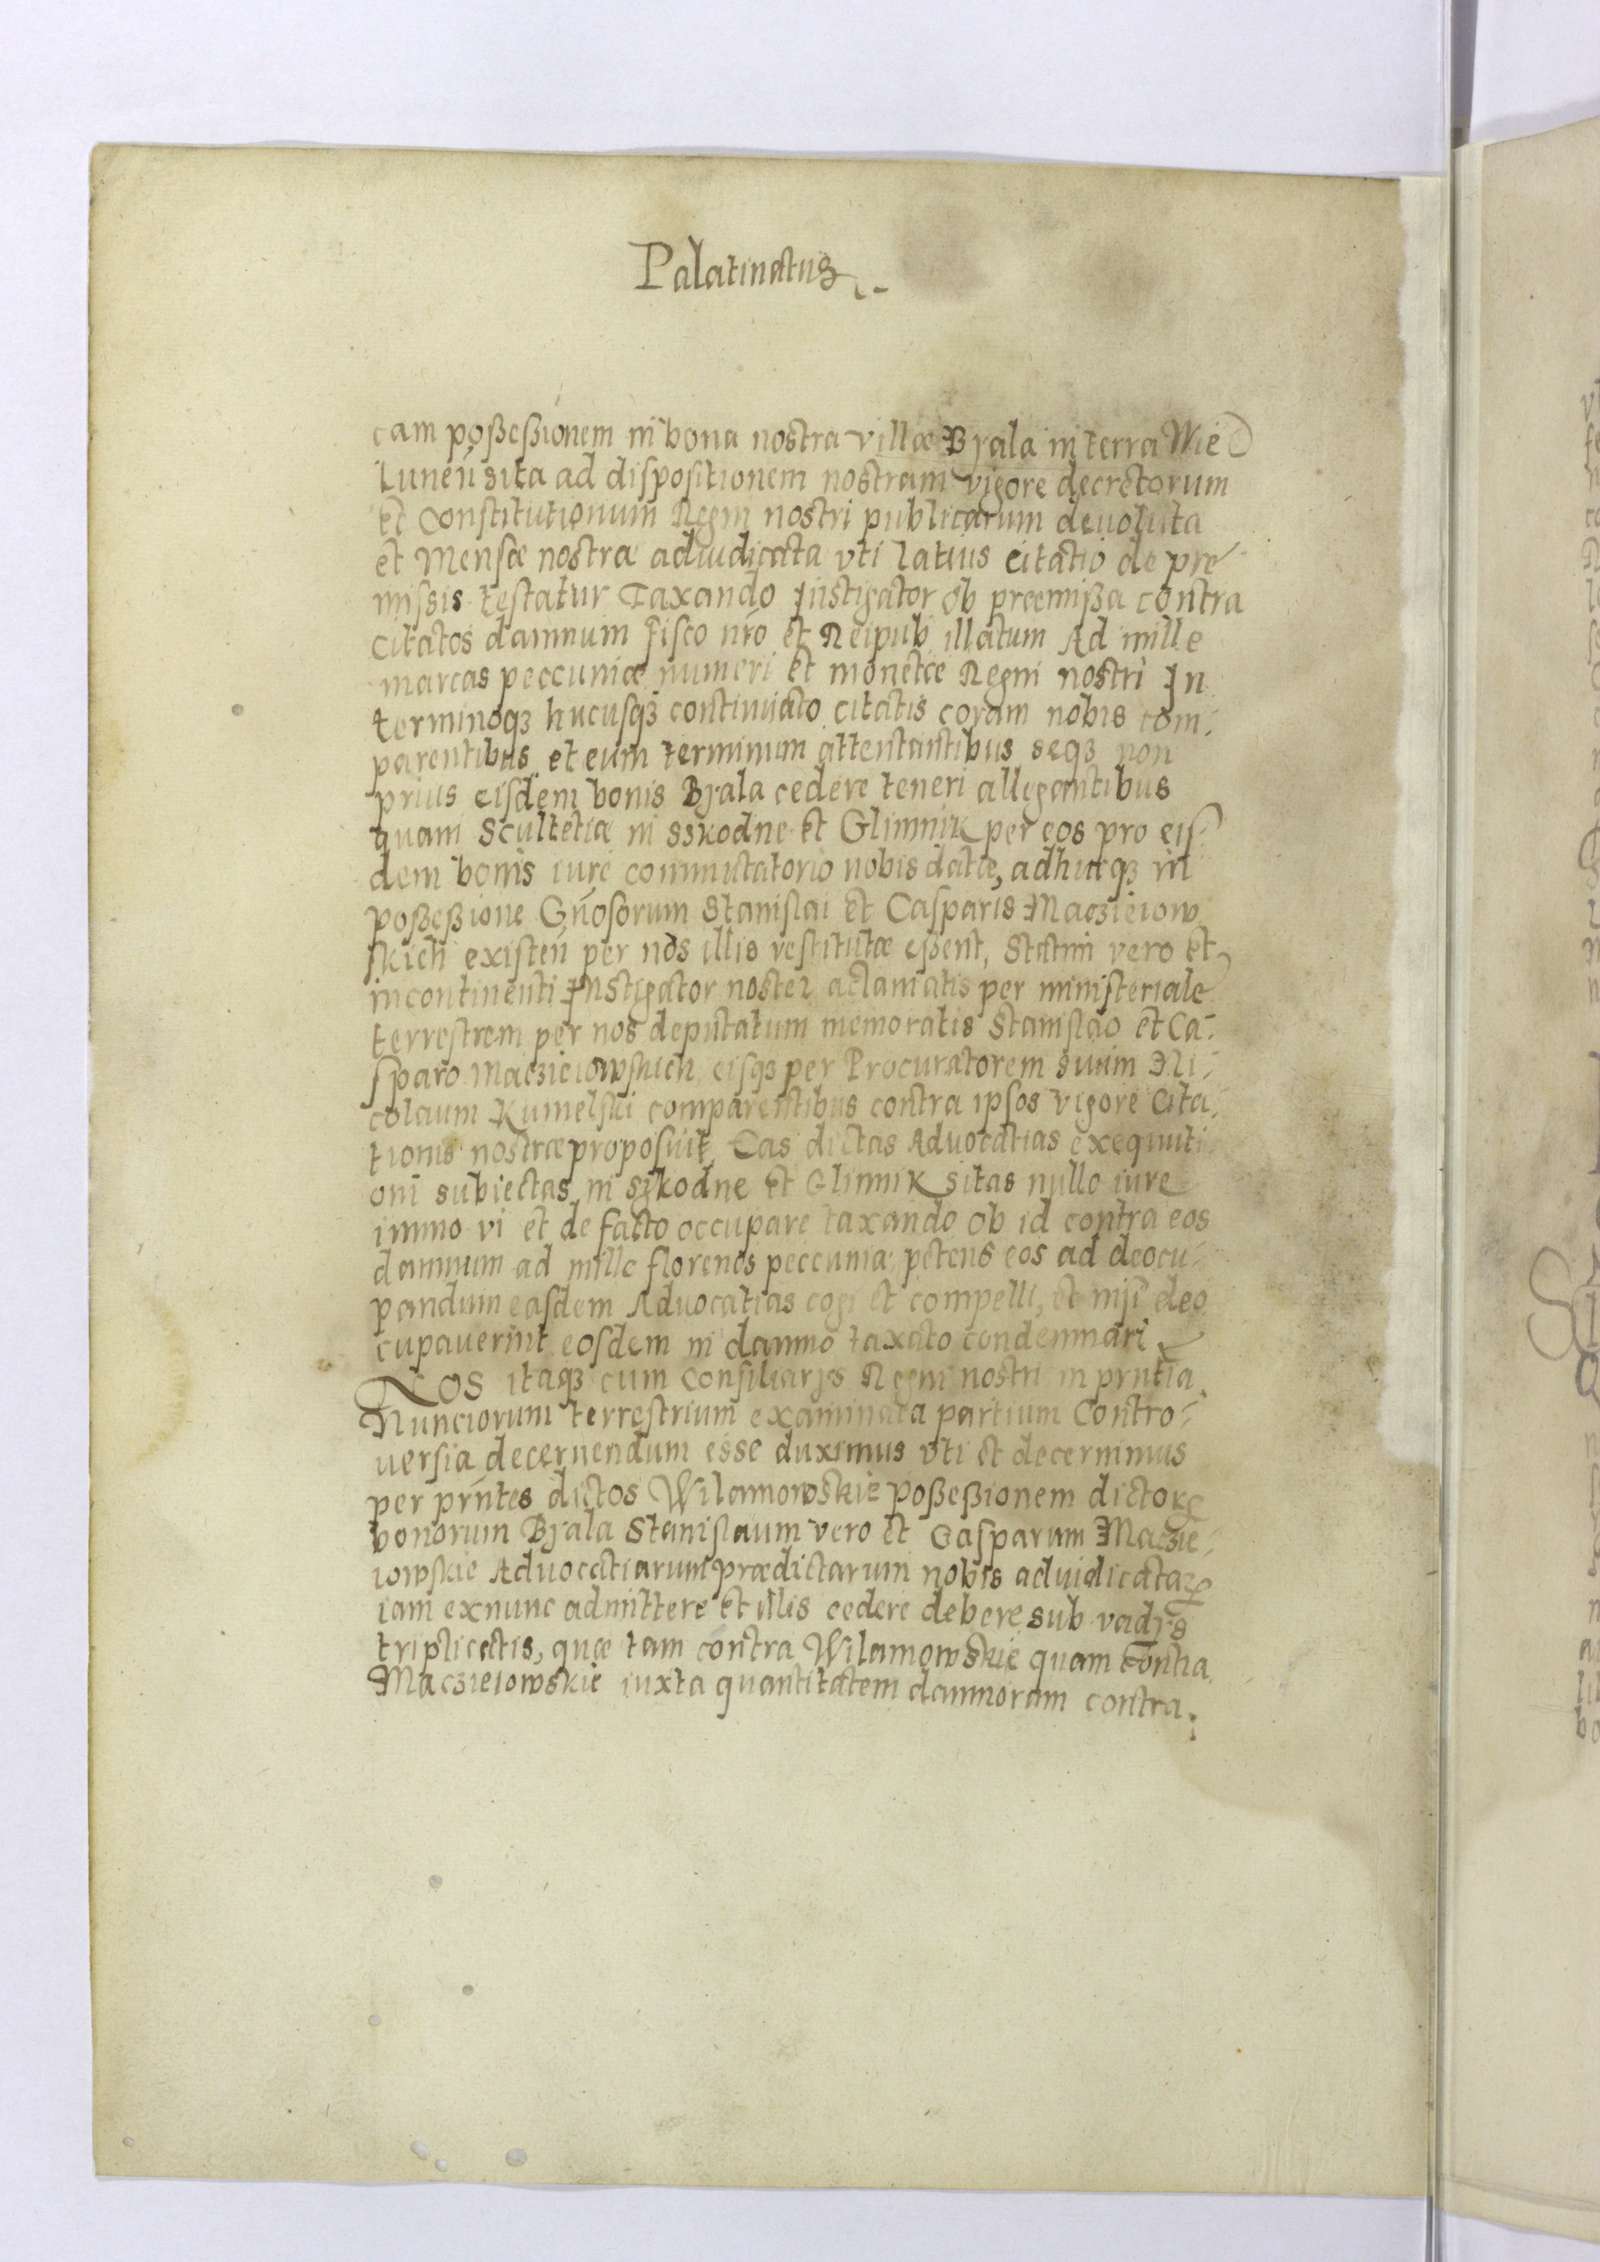 Palatinatus
cam possessionem in bona nostra villae Bÿala in terra Wie
Luneñ sita ad dispositionem nostram vigore decretorum
et Constitutionum Regni nostri publicarum deuoluta
et Mensæ nostra adiudicata vti latius citatio de pre-
missis testatur Taxando Instigator ob præmissa contra
citatos damnum fisco nro et Reipub illatum Ad mille
marcas peccuniæ numeri et monetæ Regni nostri In
terminoqꝫ hucusqꝫ continuato citatis coram nobis com-
parentibus et eum terminum attentantibus seqꝫ non
prius eisdem bonis Bÿala cedere teneri alligantibus
quam Scultetiæ in Szkodne et Glinnik per eos pro eis
dem bonis iure commutatorio nobis datæ, adhucqꝫ in
possessione Gñosorum Stanislai et Casparis Maczieiow
skich existeñ per nos illis restitutæ essent, Statim vero et
incontinenti Instigator noster aclamatis per ministeriale
terrestrem per nos deputatum memoratis Stanislao et Ca-
sparo Maczieiowskich eisqꝫ per Procuratorem suum Ni-
colaum Kumelski comparentibus contra ipsos vigore Cita-
tionis nostræ proposuit Eas dictas Aduocatias exequuti
oni subiectas in Szkodne et Glinnik sitas nullo iure
immo vi et de facto occupare taxando ob id contra eos
damnum ad mille florenos peccunia: petens eos ad deocu-
pandum easdem Aduocatias cogi et compelli, et nisi deo
cupauerint eosdem in damno taxato condemnari
Nos itaqꝫ cum Consiliarÿs Regni nostri in prñtia
Nunciorum terrestrium examinata partium Contro-
uersia decernendum esse duximus vti et decernimus
per prñtes dictos Wilamowskie possessionem dictoꝝ
bonorum Bÿala Stanislaum vero et Casparum Maczie-
iowskie Aduocatiarum prædictarum nobis adiudicataꝝ
iam exnunc admittere et illis cedere debere sub vadÿs
triplicatis, quæ tam contra Wilamowskie quam contra
Maczieiowskie iuxta quantitatem damnorum contra